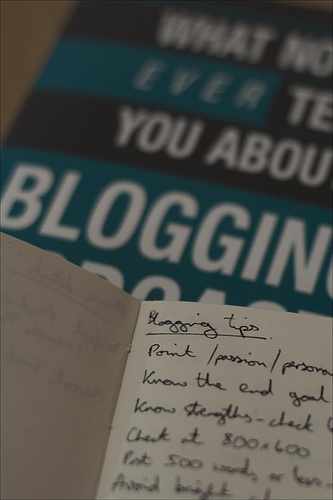 WHAT NO
EVER TE
YOU ABOU
BLOGGIN
Blogging tips
Point / passion / persona
Know the end goal
Know strengths - check
Check at 800x600
Post 500 words or less
Avoid